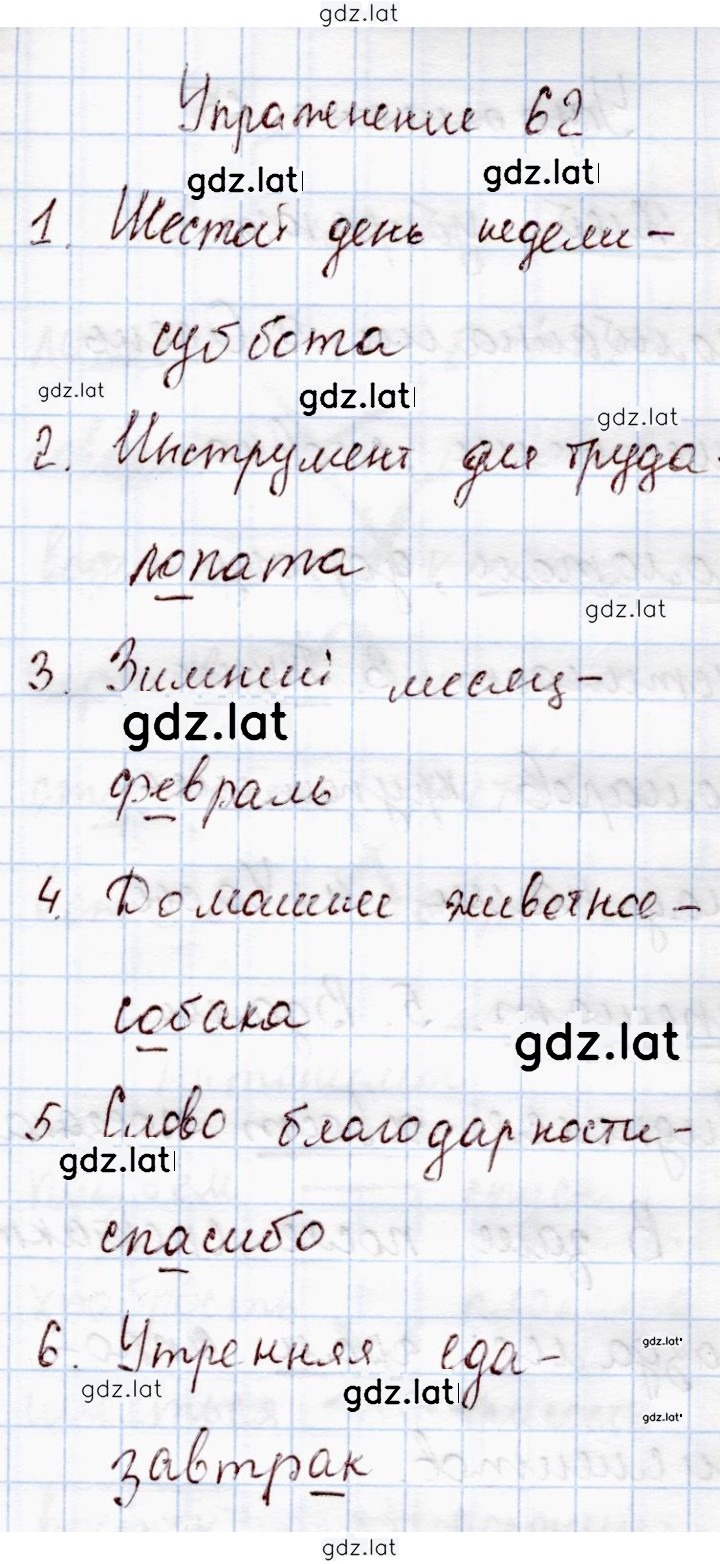 gdz.lat
Упражнение 62
gdz.lat gdz.lat
1. Шестой день недели -
суббота
gdz.lat gdz.lat gdz.lat
2. Инструмент для труда -
лопата
gdz.lat
3. Зимний месяц -
gdz.lat
февраль
4. Домашнее животное -
собака
gdz.lat
5 Слово благодарности -
gdz.lat
спасибо
6. Утренняя еда -
gdz.lat
gdz.lat gdz.lat
gdz.lat
завтрак
gdz.lat